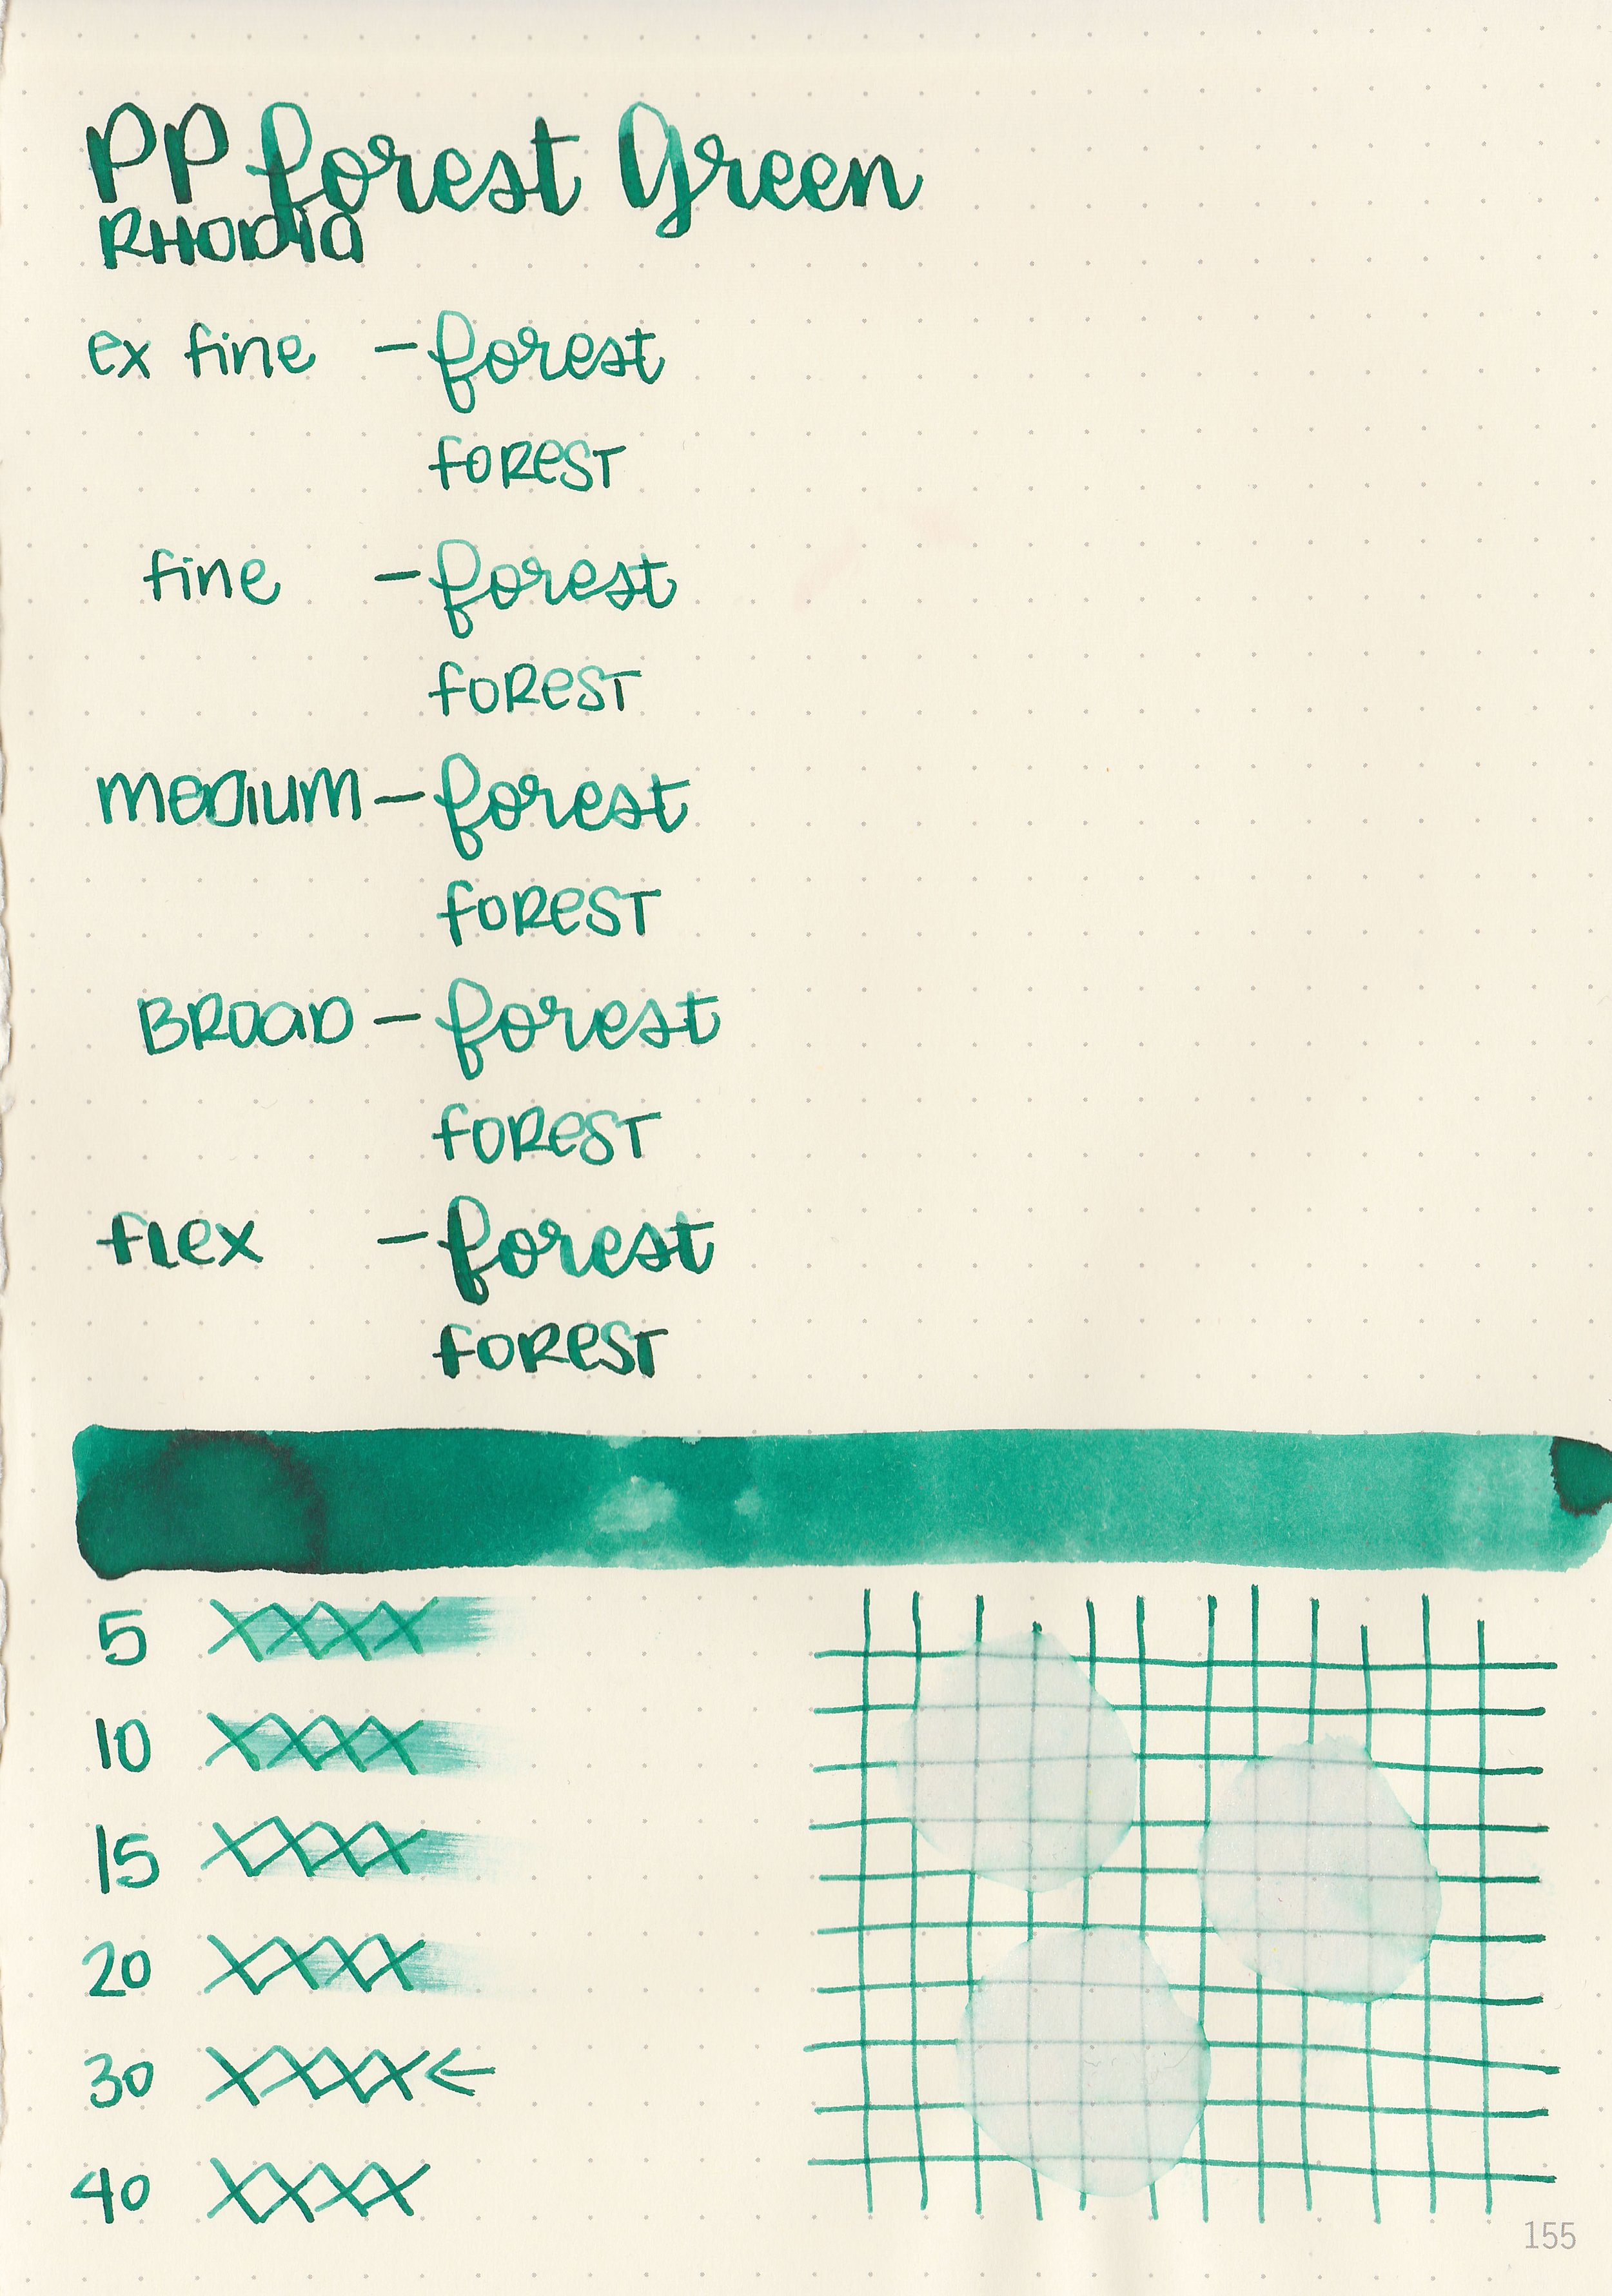 PP forest Green
RHODIA
ex fine - forest
FOREST
fine - forest
FOREST
MEDIUM - forest
FOREST
BROAD - forest
FOREST
flex - forest
FOREST
5 XXXX
10 XXXX
15 XXXX
20 XXXX
30 XXXX ←
40 XXXX
155